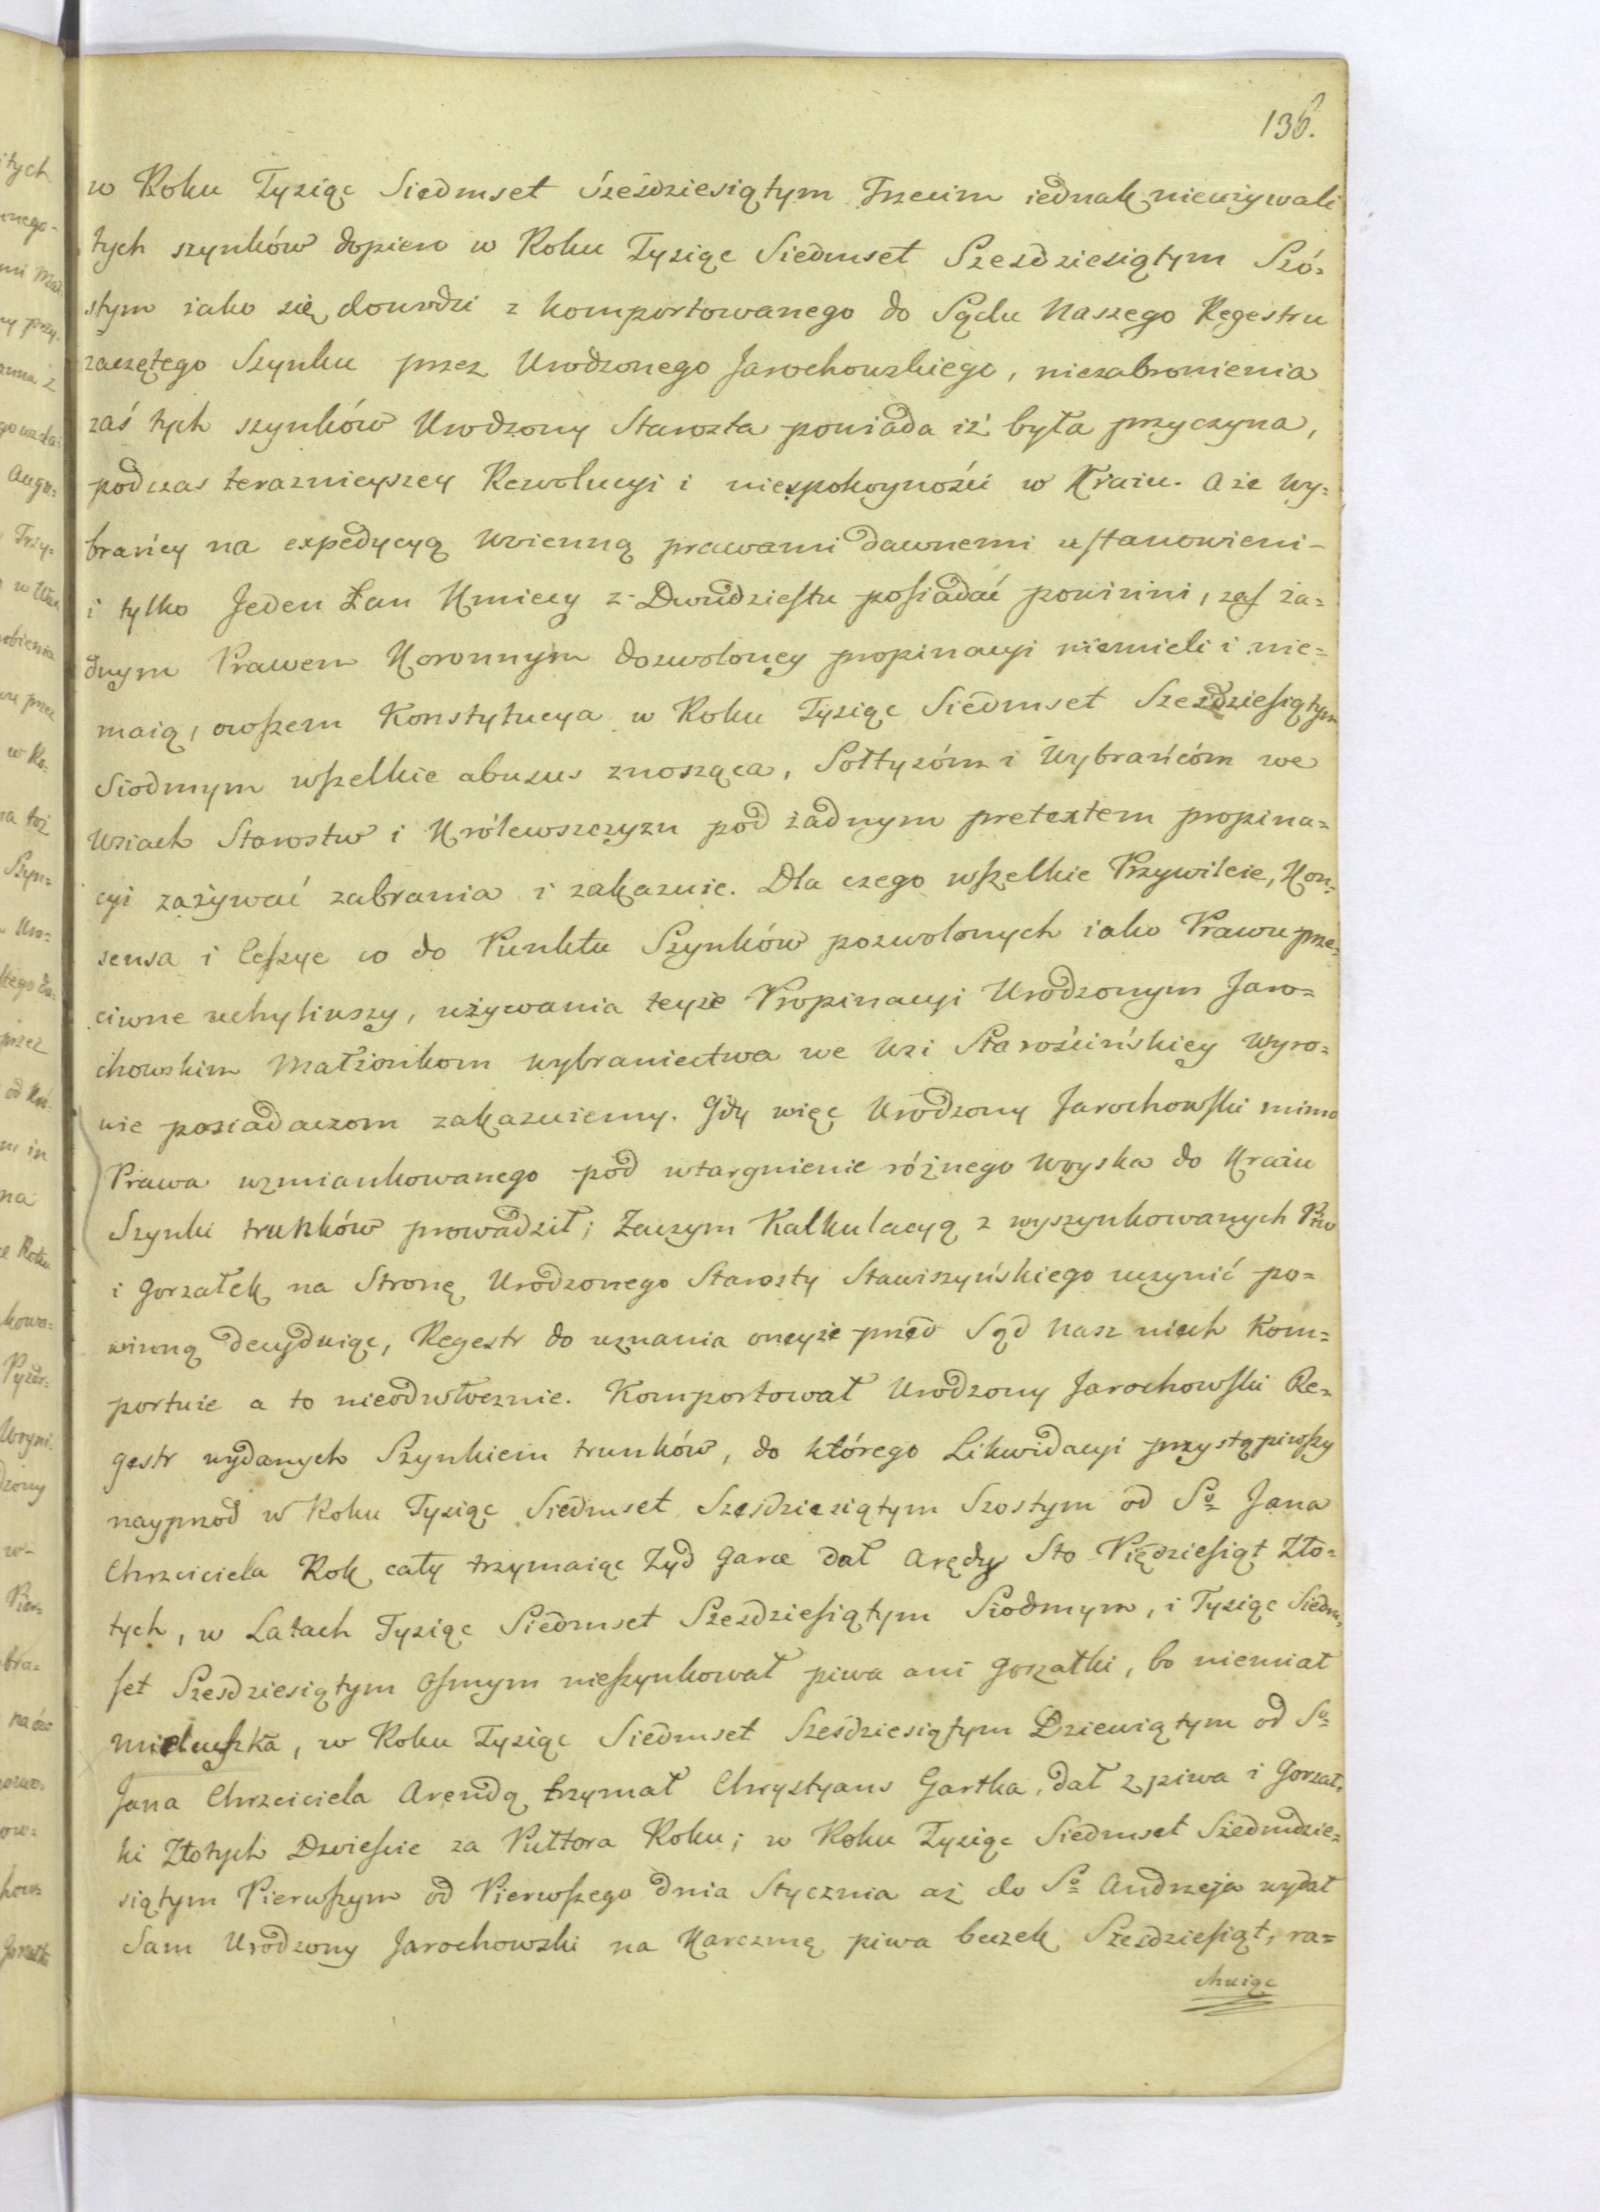 136.
w Roku Tysiąc Siedmset Sześdziesiątym Trzecim iednak nieużywali
tych szynków dopiero w Roku Tysiąc Siedmset Szesdziesiątym Szó=
stym iako się dowodzi z komportowanego do Sądu Naszego Regestru
zaczętego Szynku przez Urodzonego Jarochowskiego, niezabronienia
zaś tych szynków Urodzony Starosta powiada iż była przyczyna,
podczas teraznieyszey Rewolucyi i niespokoyności w Kraiu. a że Wy=
brańcy na expedycyą woienną prawami dawnemi ustanowieni-
i tylko Jeden Łan Kmiecy z Dwudziestu posiadać powinni, zaś ża=
dnym Prawem Koronnym dozwoloney propinacyi niemieli i nie=
maią, owszem Konstytucya w Roku Tysiąc Siedmset Szesdziesiątym
Siodmym wszelkie abusus znosząca, Sołtysóm i Wybrańcóm we
Wsiach Starostw i Królewszczyzn pod żadnym pretextem propina=
cyi zażywać zabrania i zakazuie. Dla czego wszelkie Przywileie, Kon=
sensa i Cessye co do Punktu Szynków pozwolonych iako Prawu prze=
ciwne uchyliwszy, używania teyże Propinacyi Urodzonym Jaro=
chowskim Małżonkom Wybraniectwa we Wsi Starościńskiey Wyro=
wie posiadaczom zakazuiemy. Gdy więc Urodzony Jarochowski mimo
Prawa wzmiankowanego pod wtargnienie różnego Woyska do Kraiu
Szynki trunków prowadził; Zaczym Kalkulacyą z wyszynkowanych Piw
i gorzałek na Stronę Urodzonego Starosty Stawiszyńskiego uczynić po=
winną decyduiąc, Regestr do uznania oneyże przed Sąd Nasz niech Kom=
portuie a to nieodwłocznie. Komportował Urodzony Jarochowski Re=
gestr wydanych Szynkiem trunków, do którego Likwidacyi przystąpiwszy
nayprzod w Roku Tysiąc Siedmset Szesdziesiątym Szostym od So Jana
Chrzciciela Rok cały trzymaiąc Żyd Garce dał Arędy Sto Pięćdziesiąt Zło=
tych, w Latach Tysiąc Siedmset Szesdziesiątym Siodmym, i Tysiąc Siedm=
set Szesdziesiątym Osmym nieszynkował piwa ani gorzałki, bo niemiał
, w Roku Tysiąc Siedmset Sześdziesiątym Dziewiątym od So
Jana Chrzciciela Arendą trzymał Chrystyans Gartka, dał z piwa i Gorzał=
ki Złotych Dwieście za Pułtora Roku; w Roku Tysiąc Siedmset Siedmdzie=
siątym Pierwszym od Pierwszego dnia Stycznia aż do So Andrzeja wydał
Sam Urodzony Jarochowski na Karczmę piwa beczek Szesdziesiąt, ra=
chuiąc